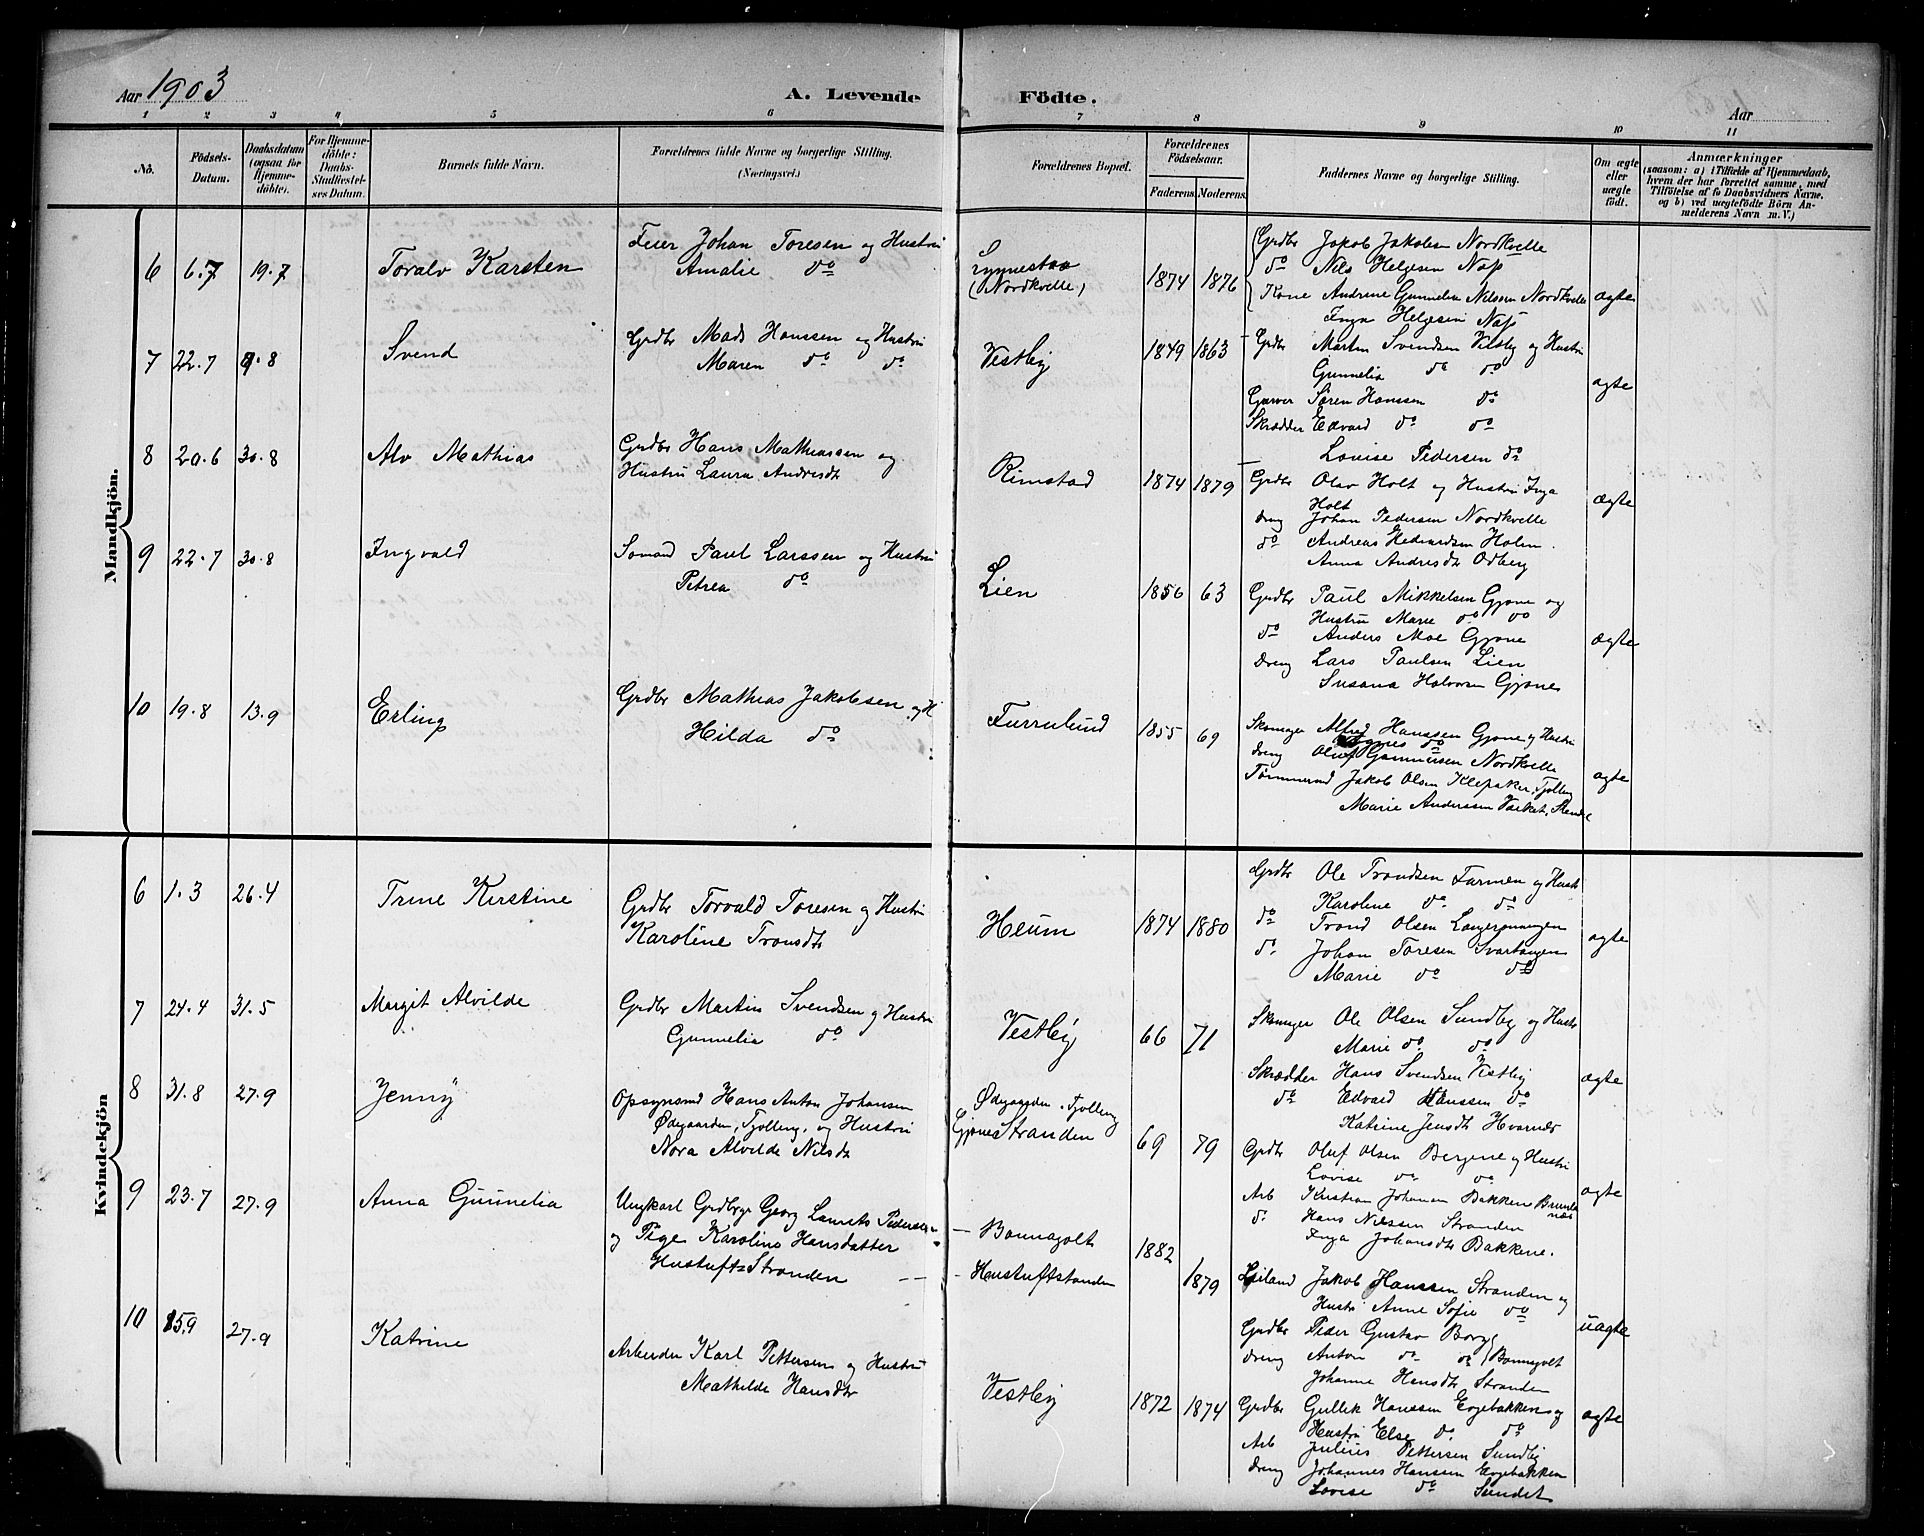 Aar 1903
A. Levende Födte.
Aar
1 2 3 4 5 6 7 8 9 10 11
No.
Födsels-Datum.
Daabsdatum (ogsaa for Hjemme-döbte).
For Hjemme-döbte: Daabs-Stadfæstel-ses Datum.
Barnets fulde Navn.
Forældrenes fulde Navne og borgerlige Stilling.
(Næringsvei.)
Forældrenes Bopæl.
Forældrenes Födselsaar.
Faderens. Moderens.
Faddernes Navne og borgerlige Stilling.
Om ægte eller uægte födt.
Anmærkninger
(saasom: a) i Tilfælde af Hjemmedaab,
hvem der har forrettet samme, med
Tilföielse af to Daabsvidners Navne,
og b) ved uægtefödte Börn An-
melderens Navn m. V.)
Mandkjön.
6 6.7 19.7 Toralv Karsten
Feier Johan Toresen og Hustru
Amalie do
(Nordkvelle)
1874 1876
Grdbr Jakob Jakobsen Nordkvelle
do Nils Helgesen Næs
Kone Andrine Gunnelia Nilssen Nordkvelle
Inga Helgesen Næs
ægte
7 22.7 9.8 Svend
Grdbr Mads Hanssen og Hustru
Maren do do
Vestby
1849 1863
Grdbr Martin Svendsen Vestby og Hustru
Gunnelia do do
Garver Sören Hanssen do
Skrædder Edvard do do
Lovise Pedersen do
ægte
8 20.6 30.8 Alv Mathias
Grdbr Hans Mathiassen og
Hustru Laura Andresdtr
Rimstad
1874 1879
Grdbr Olav Holt og Hustru Inga
Holt
dreng Johan Pedersen Nordkvelle
do Andreas Hedvardsen Holm.
Anna Andresdtr Odberg
ægte
9 22.7 30.8 Ingvald
Sömand Paul Larssen og Hustru
Petrea do
Lien
1856 63
Grdbr Paul Mikkelsen Gjone og
Hustru Marie do do
do Anders Moe Gjone
dreng Lars Paulsen Lien
Susana Halvorsen Gjone
ægte
10 19.8 13.9 Erling
Grdbr Mathias Jakobsen og H
Hilda do
Furrulund
1855 69
Skomager Alfred Hanssen Gjone og Hustru
Agnes do
dreng Oluf Gunnersen Nordkvelle
Tömmermd Jakob Olsen Klepaker, Tjölling
Marie Anderssen
ægte
Kvindekjön
6 1.3 26.4 Trine Kirstine
Grdbr Torvald Toresen og Hustru
Karoline Tronsdtr
Heum
1874 1880
Grdbr Ole Trondsen Farmen og Hustr
Karoline do do
do Trond Olsen Langerönningen
do Johan Toresen Svartangen
Marie do do
ægte
7 24.4 31.5 Margit Alvilde
Grdbr Martin Svendsen og Hustru
Gunnelia do
Vestby
66 71
Skomager Ole Olsen Sundby og Hustr
Marie do do
Skrædder Hans Svendsen Vestby
do Edvard Hanssen do
Katrine Jensdtr Hvarnes
ægte
8 31.8 27.9 Jenny
Opsynsmd Hans Anton Johansen
Ødegaarden, Tjölling, og Hustru
Nora Alvilde Nilsdtr
Ødegaarden, Tjölling
Gjone Stranden
69 79
Grdbr Oluf Olsen Bergene og Hustru
Lovise do do
Arb Kristian Johansen Bakkene Brunlanæs
do Hans Nilssen Stranden
Inga Johansdtr Bakkene.
ægte
9 23.7 27.9 Anna Gunnelia
Ungkarl Grdbrs. Georg Laurits Pedersen
og Pige Karoline Hansdatter
Hustuft-Stranden
– Bonnagolt
– Hustuftstranden
1882
1879
Leiland Jakob Hanssen Stranden og
Hustr Anne Sofie do
Grdbr Peder Gustav Borge
dreng Anton do do Bonnegolt
Johanne Hansdtr Stranden
uægte
10 15.9 27.9 Katrine
Arbeider Karl Pettersen og Hustru
Mathilde Hansdtr
Vestby
1872 1874
Grdbr Gullik Hanssen Ergebakken og
Hustru Else do do
Arb Julius Pettersen Sundby
dreng Johannes Hanssen Ergebakken
Lovise do Sundet
ægte